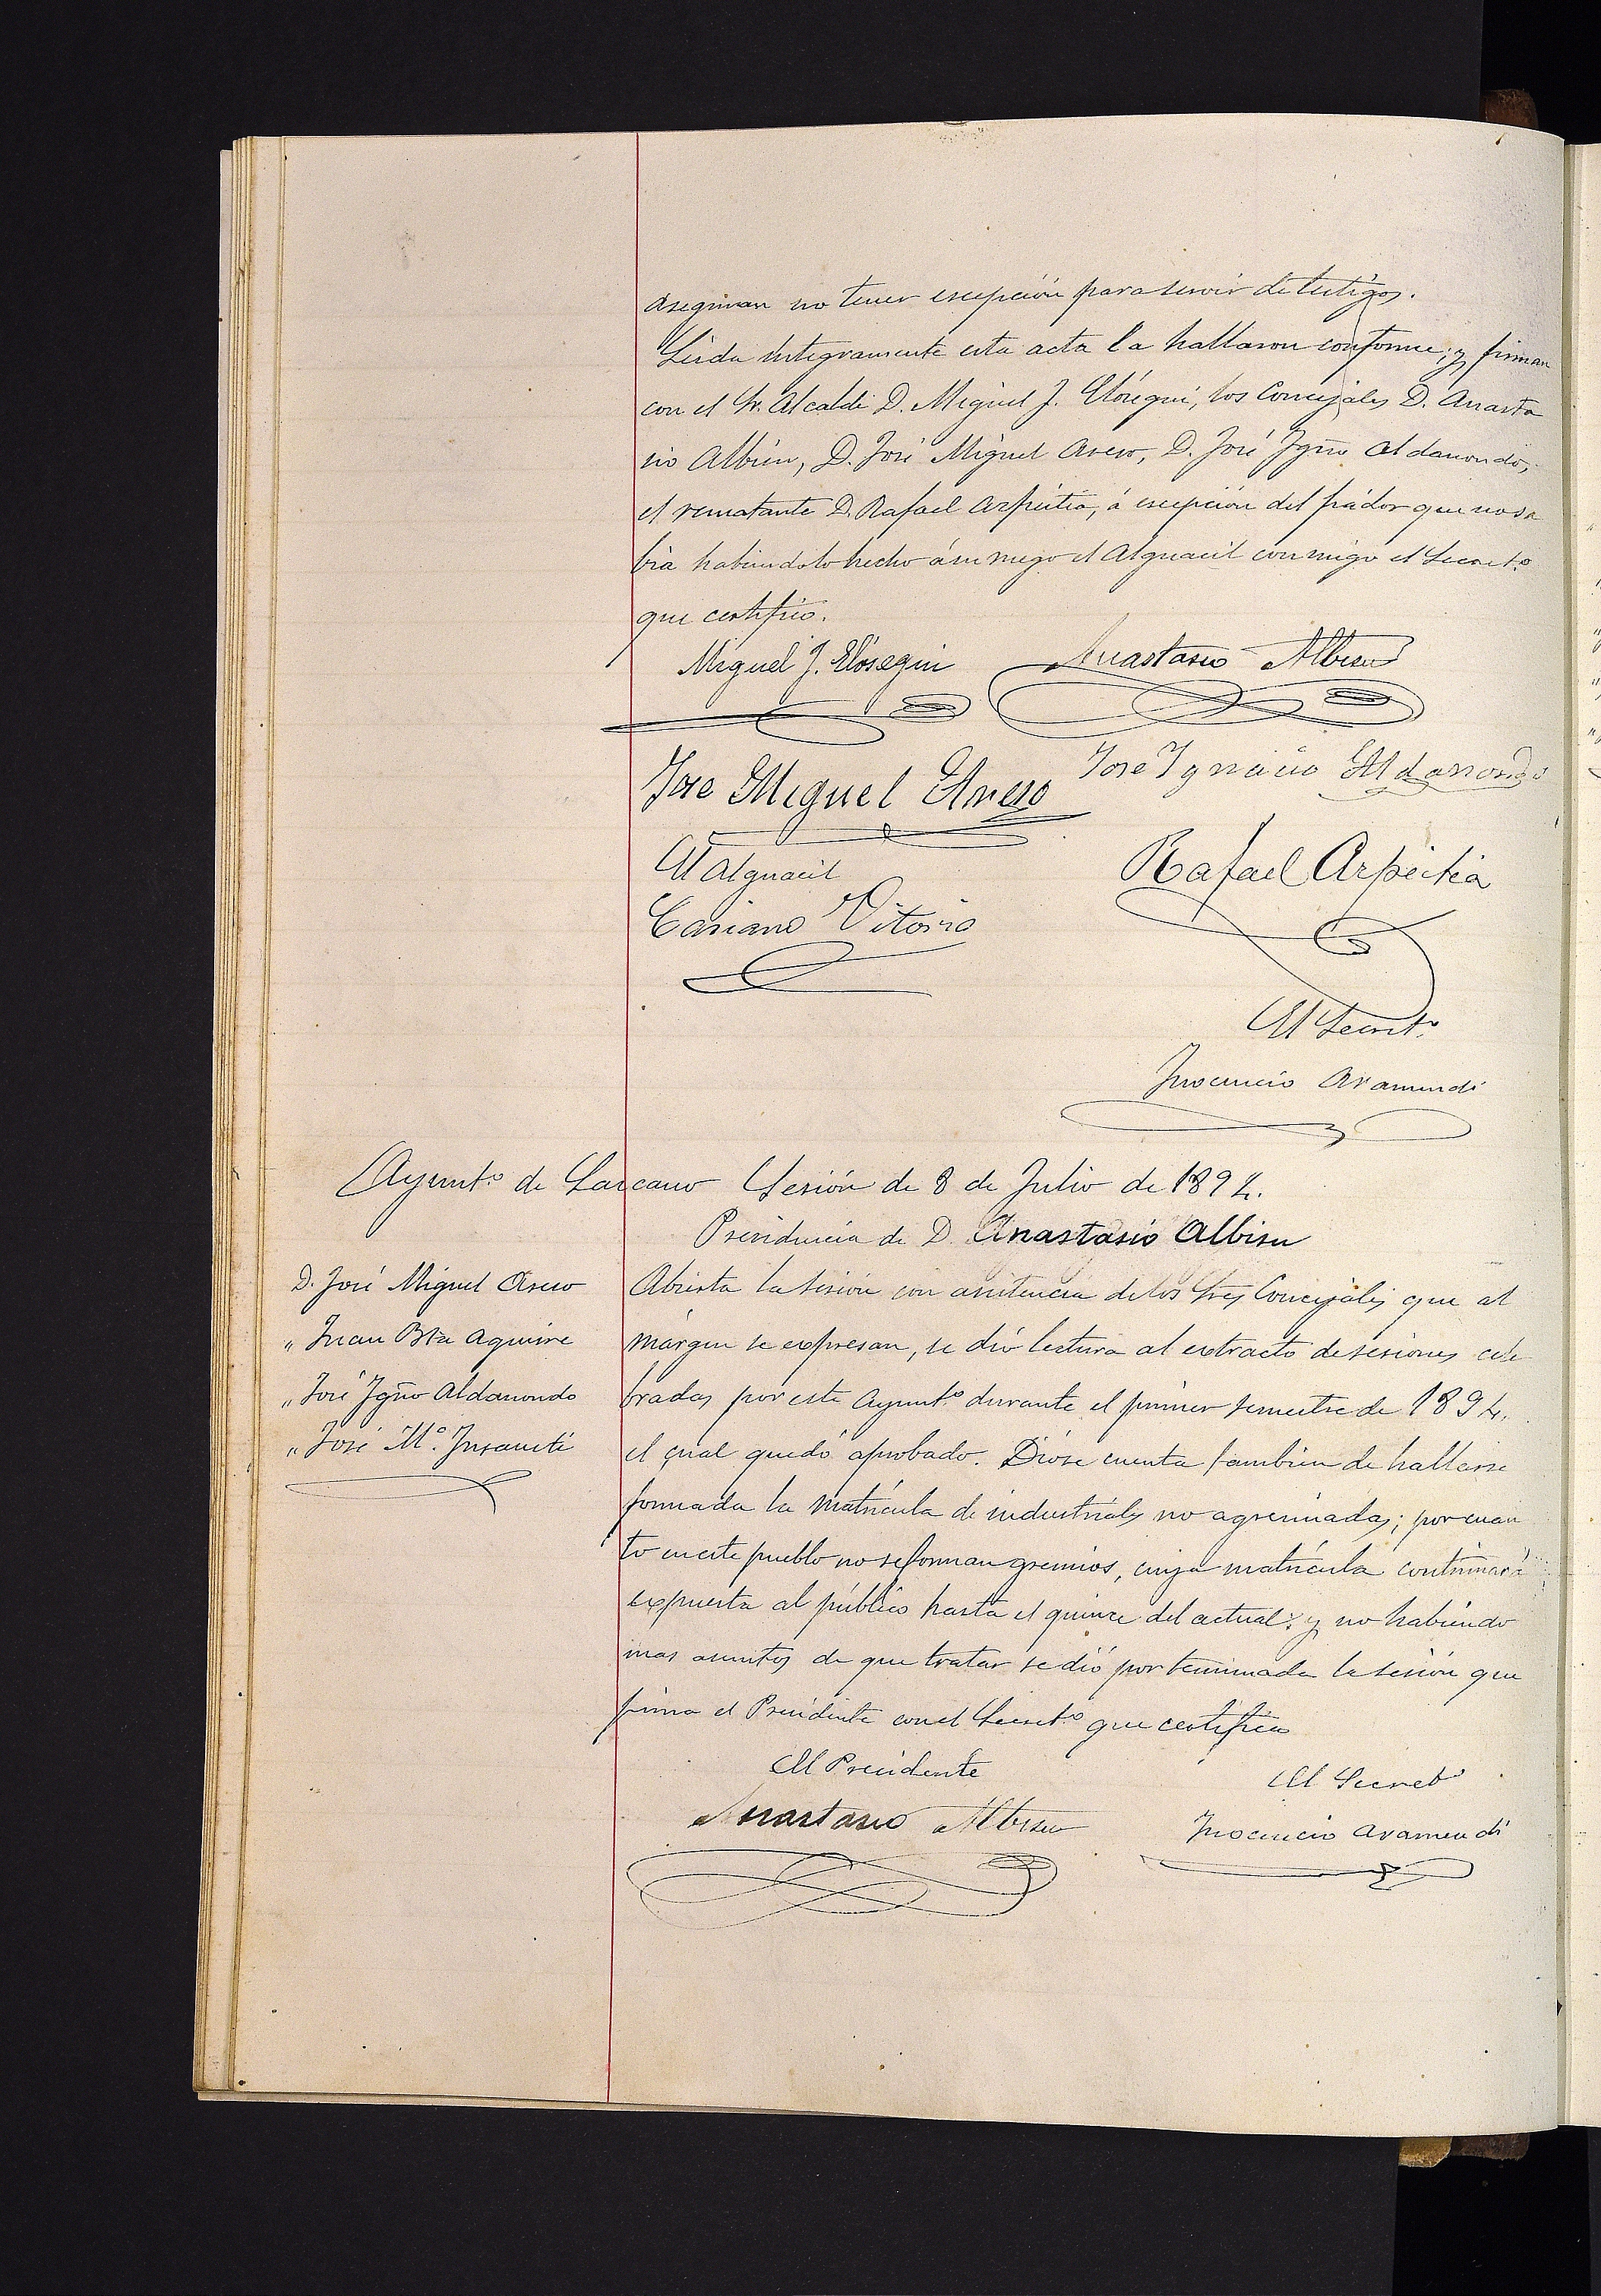 aseguran no tener escepción para servir de testigos.
Leida integramente esta acta la hallaron conforme; y firman
con el Sr. Alcalde D. Miguel J. Elósegui, los Concejales D. Anasta
sio Albisu, D. José Miguel Areso, D. José Ygño Aldanondo,
el rematante D. Rafael Arpeitia, á escepción del fiador que no sa
bia habiendolo hecho á su ruego el Alguacil conmigo el Secretº
que certifico.
Miguel J. Elósegui Anastasio Albisu
Jose Miguel Areso Jose Ignacio Aldanondo
El Alguacil
Rafael Arpeitia
Casiano Vitoria
El Secretº
Ynocencio Aramendi
Ayuntº de Lazcano Sesión de 8 de Julio de 1894.
Presidencia de D. Anastasio Albisu
D. José Miguel Areso
" Juan Bta Aguirre
" José Ygño Aldanondo
" José Mª. Insausti
Abierta la sesión con asistencia de los Sres Concejales que al
márgen se expresan, se dió lectura al extracto de sesiones cele
bradas por este Ayuntº durante el primer semestre de 1894.
el cual quedó aprobado. Dióse cuenta tambien de hallarse
formada la matrícula de industriales no agremiadas; por cuan
to en este pueblo no se forman gremios, cuya matrícula continuará
expuesta al público hasta el quince del actual: y no habiendo
mas asuntos de que tratar se dió por terminada la sesión que
firma el Presidente con el Secretº que certifica
El Presidente El Secretº
Anastasio Albisu Ynocencio Aramendi